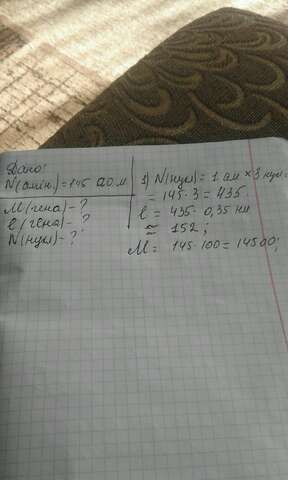 Дано:
N(амін.) = 145
M(гена) - ?
l(гена) - ?
N(нукл) - ?
1) N(нукл) = 1 ам × 3 нукл =
= 145 · 3 = 435.
l = 435 · 0,35 нм
≈ 152;
M = 145·100 = 14500;